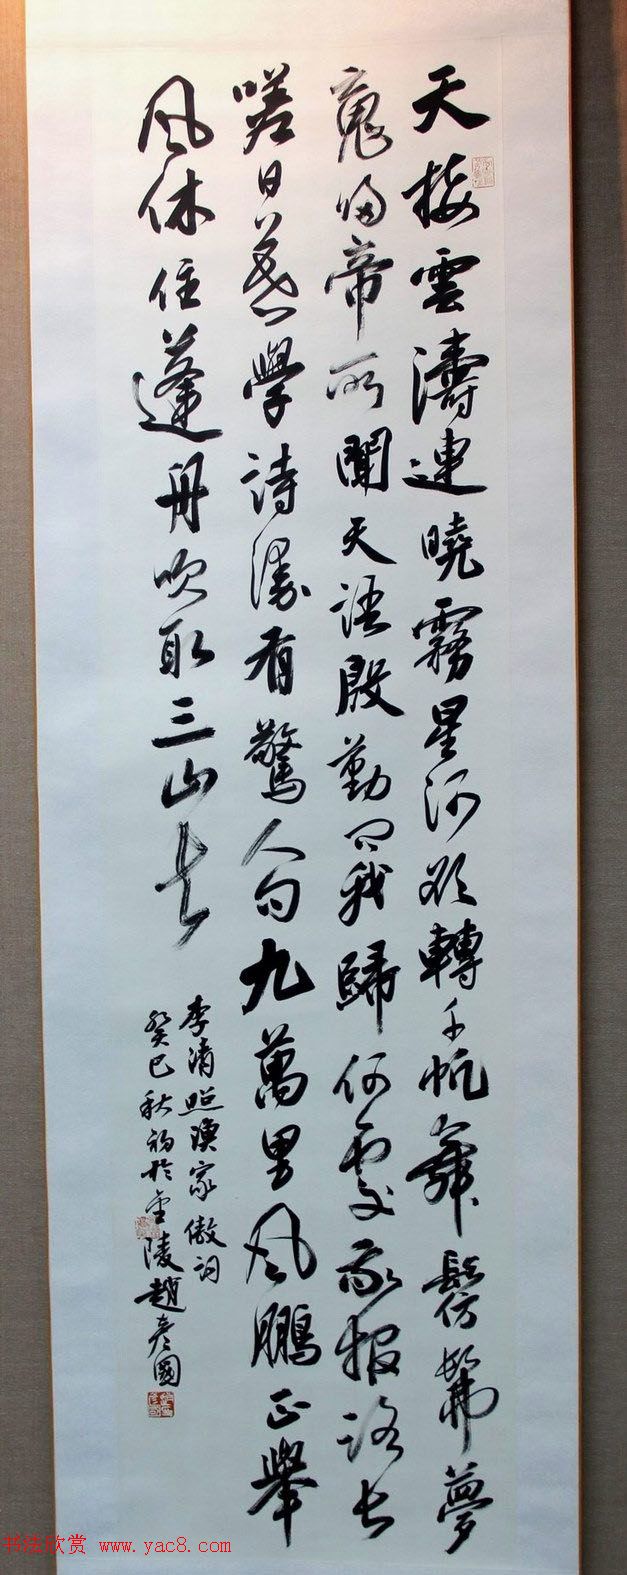 天接雲濤連曉霧星河欲轉千帆舞髣髴夢
魂歸帝所聞天語殷勤問我歸何處我報路長
嗟日暮學詩漫有驚人句九萬里風鵬正舉
風休住蓬舟吹取三山去
李清照漁家傲詞
癸巳秋初於金陵趙彥國
书法欣赏 www.yac8.com